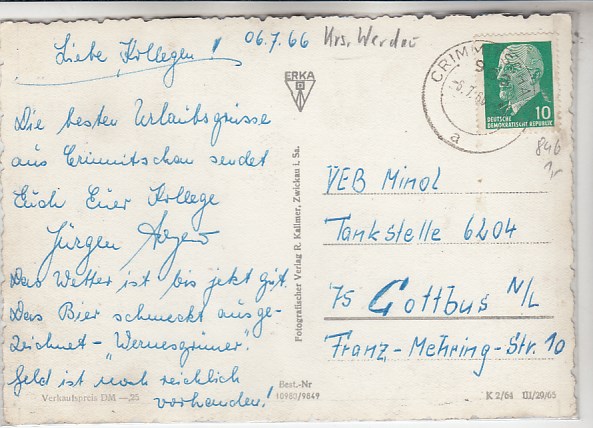 06.7.66 Krs. Werdau
Liebe Kollegen!
Die besten Urlaubsgrüsse
aus Crimmitschau sendet
Euch Euer Kollege
Jürgen
Das Wetter ist bis jetzt gut.
Das Bier schmeckt ausge-
zeichnet - "Wernesgrüner".
Geld ist noch reichlich
vorhanden!
Verkaufspreis DM —.25
ERKA
Fotografischer Verlag R. Kallmer, Zwickau i. Sa.
Best.-Nr
10980/9849
CRIMM
a
10
DEUTSCHE
DEMOKRATISCHE REPUBLIK
846
1,-
VEB Minol
Tankstelle 6204
75 Cottbus N/L
Franz-Mehring-Str. 10
K 2/64 III/29/65